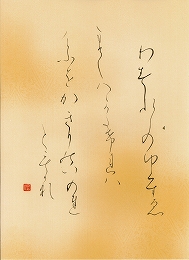 わすれしのゆくすゑ
まてはかたけれは
けふをかきりのいのち
ともかな